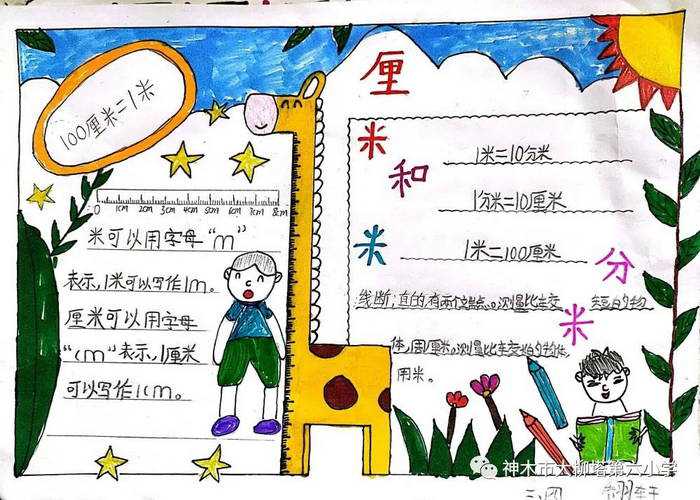 100厘米=1米
0 1cm 2cm 3cm 4cm 5cm 6cm 7cm 8cm
米可以用字母“m”
表示,1米可以写作1m。
厘米可以用字母
“cm”表示,1厘米
可以写作1cm。
厘
米
和
米
分
米
1米=10分米
1分米=10厘米
1米=100厘米
线断;直的,有两个端点。测量比主交 短的物
体,用厘米。测量比主交的物体,
用米。
神木市大柳塔第六小学